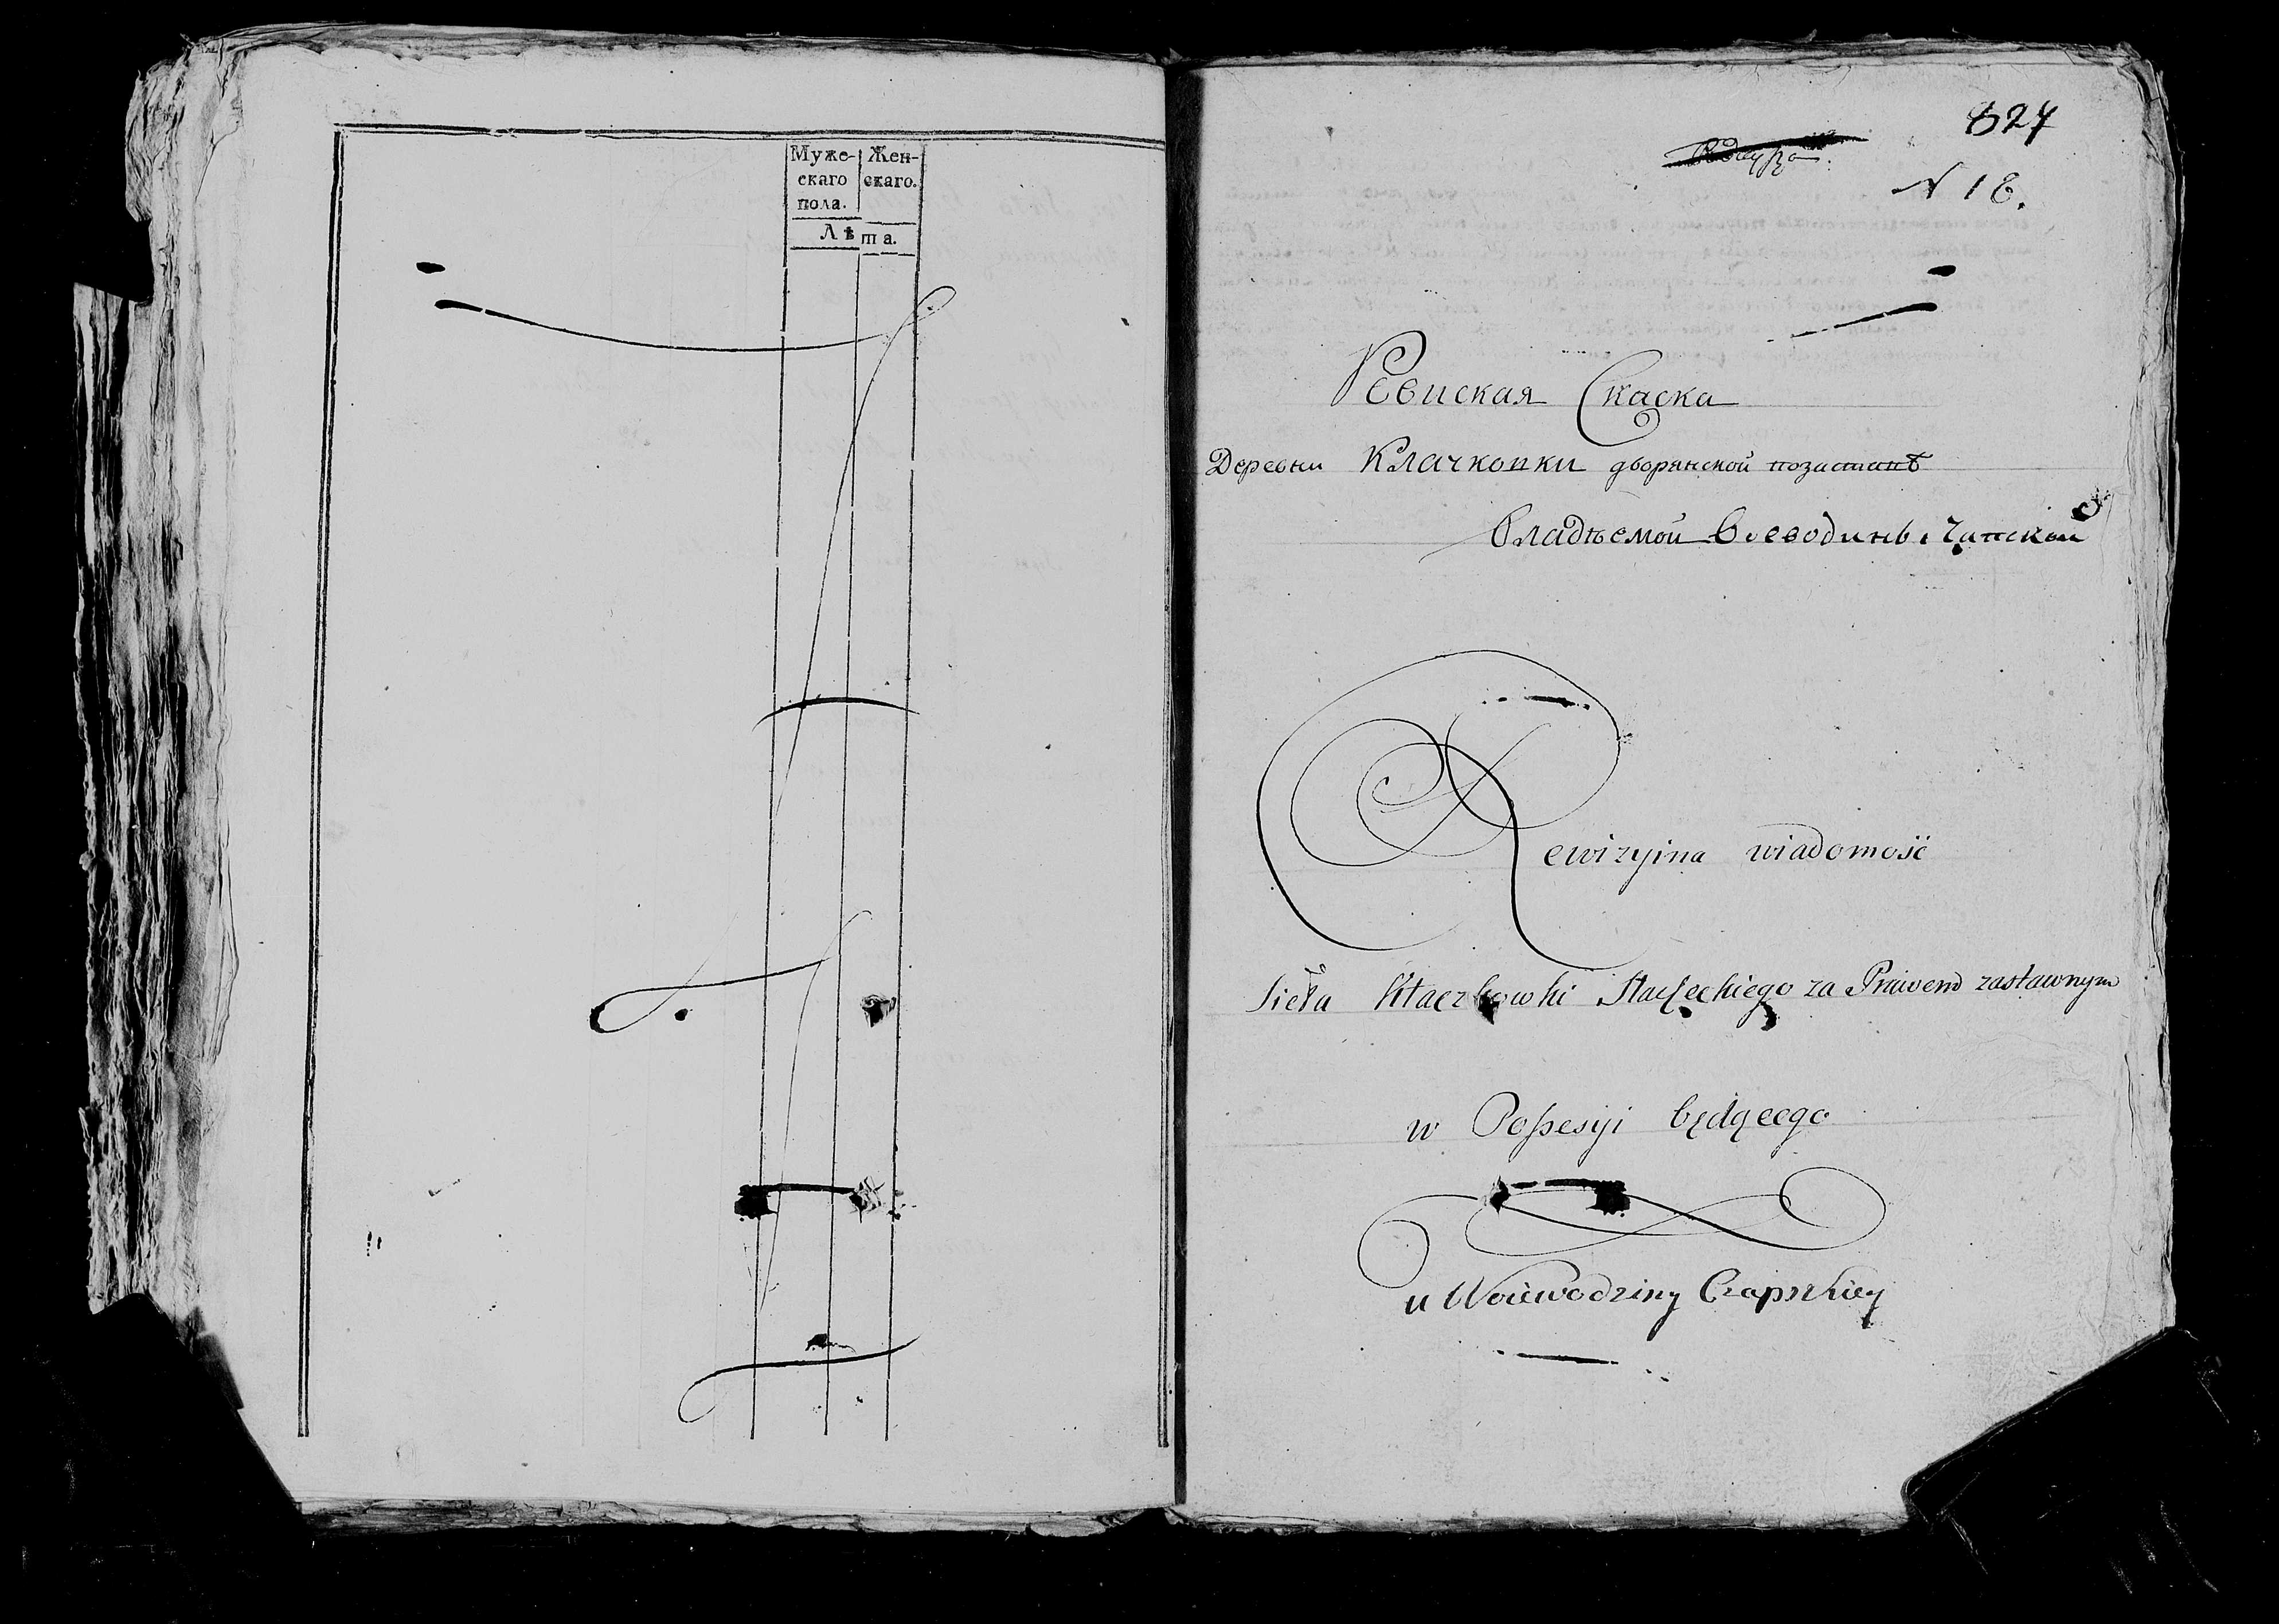 Муже-
скаго
пола.
Жен-
скаго.
Лѣта.
827
N 18.
Ревиская Скаска
Деревни Клачковки дворянской
Владѣемой Воеводинь Чапской
Rewizyina wiadomość
Sieła Kłaczkowki Szlacheckiego za Prawem zastawnym
w Possesyi będącego
u Woiewodziny Czapskiey